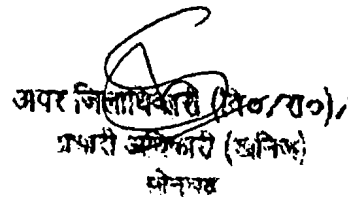 अपर जिलाधिकारी (वि०/रा०),
प्रभारी अधिकारी (खनिज)
सोनभद्र